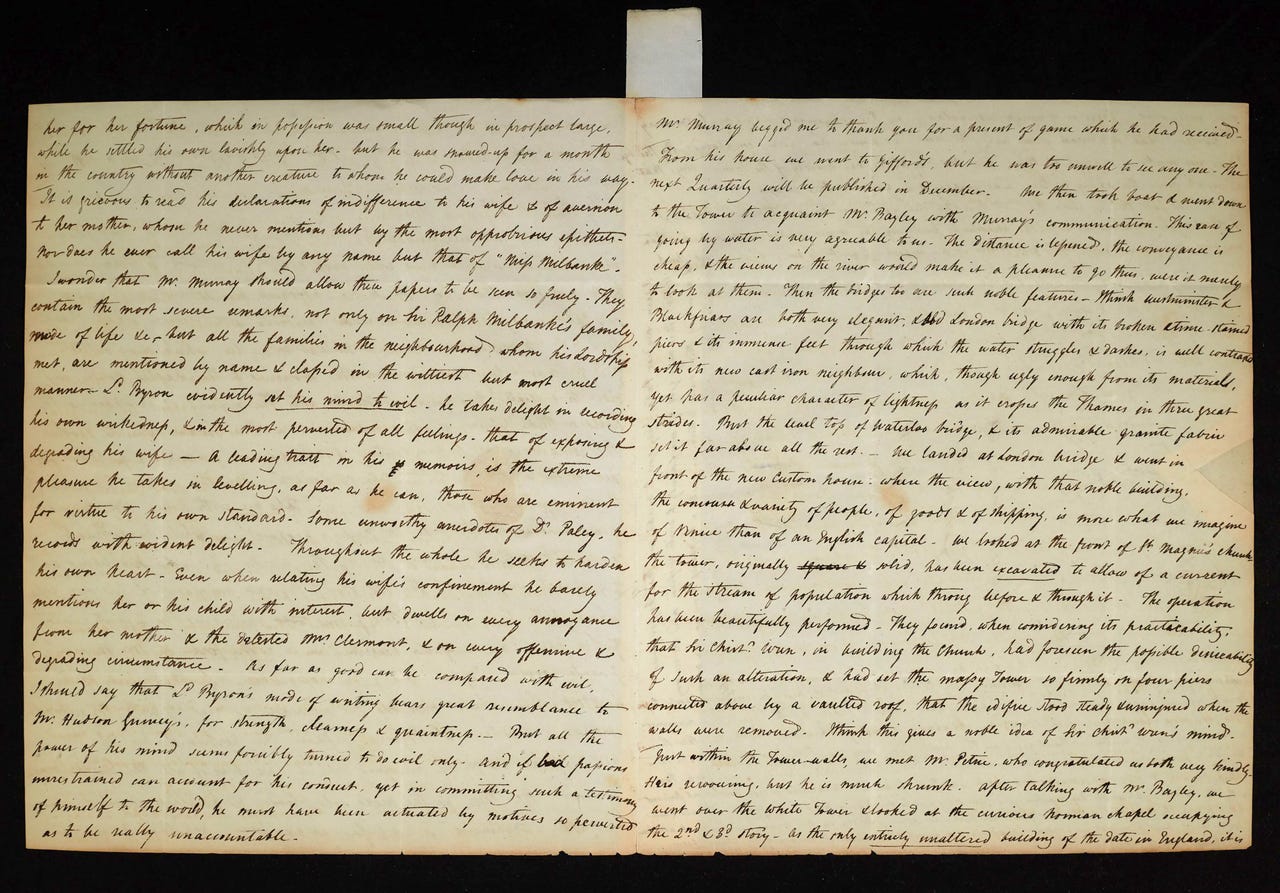 her for her fortune, which in possession was small though in prospect large,
while he settled his own lavishly upon her - but he was snowed-up for a month
in the country without another creature to whom he could make love in his way.
It is grievous to read his declarations of indifference to his wife & of aversion
to her mother, whom he never mentions but by the most opprobrious epithets -
nor does he ever call his wife by any name but that of "Miss Milbanke".
I wonder that Mr. Murray should allow these papers to be seen so freely - They
contain the most severe remarks, not only on Sir Ralph Milbanke's family,
mode of life &c, but all the families in the neighbourhood whom his Lordship
met, are mentioned by name & classed in the wittiest but most cruel
manner - Ld. Byron evidently set his mind to evil - he takes delight in recording
his own wickedness, & in the most perverted of all feelings - that of exposing &
degrading his wife — A leading trait in his memoirs, is the extreme
pleasure he takes in levelling, as far as he can, those who are eminent
for virtue to his own standard. Some unworthy anecdotes of Dr. Paley, he
records with evident delight. Throughout the whole he seeks to harden
his own heart - Even when relating his wife's confinement he barely
mentions her or his child with interest but dwells on every annoyance
from her mother & the detested Mrs. Clermont, & on every offensive &
degrading circumstance. As far as good can be compared with evil,
I should say that Ld. Byron's mode of writing bears great resemblance to
Mr. Hudson Gurney's, for strength, clearness & quaintness. — But all the
power of his mind seems forcibly turned to do evil only - and if bad passions
unrestrained can account for his conduct, yet in committing such a testimony
of himself to the world, he must have been actuated by motives so perverted
as to be really unaccountable.
Mr. Murray begged me to thank you for a present of game which he had received
From his house we went to Gifford's, but he was too unwell to see any one - The
next Quarterly will be published in December. We then took boat & went down
to the Tower to acquaint Mr. Bayley with Murray's communication. This way of
going by water is very agreeable to us - The distance is lessened, the conveyance is
cheap, & the views on the river would make it a pleasure to go thus, were it merely
to look at them. Then the bridges too are such noble features - I think Westminster &
Blackfriars are both very elegant, & old London bridge with its broken & time-stained
piers & its immense feet through which the water struggles & dashes, is well contrasted
with its new cast iron neighbour, which, though ugly enough from its materials,
yet has a peculiar character of lightness as it crosses the Thames in three great
strides. But the level top of Waterloo bridge, & its admirable granite fabric
set it far above all the rest. - We landed at London bridge & went in
front of the new Custom house: where the view, with that noble building,
the concourse & variety of people, of goods & of shipping, is more what we imagine
of Venice than of an English capital - We looked at the front of St. Magnus's church
the tower, originally square & solid, has been excavated to allow of a current
for the stream of population which throng before & through it - The operation
has been beautifully performed - They found, when considering its practicability,
that Sir Christr. Wren, in building the Church, had foreseen the possible desireability
of such an alteration, & had set the massy Tower so firmly on four piers
connected above by a vaulted roof, that the edifice stood steady & uninjured when the
walls were removed. I think this gives a noble idea of Sir Christr. Wren's mind.
Just within the Tower-walls, we met Mr. Petrie, who congratulated us both very kindly.
He is recovering, but he is much shrunk. After talking with Mr. Bayley, we
went over the White Tower & looked at the curious Norman chapel occupying
the 2nd & 3d story - as the only entirely unaltered building of the date in England, it is